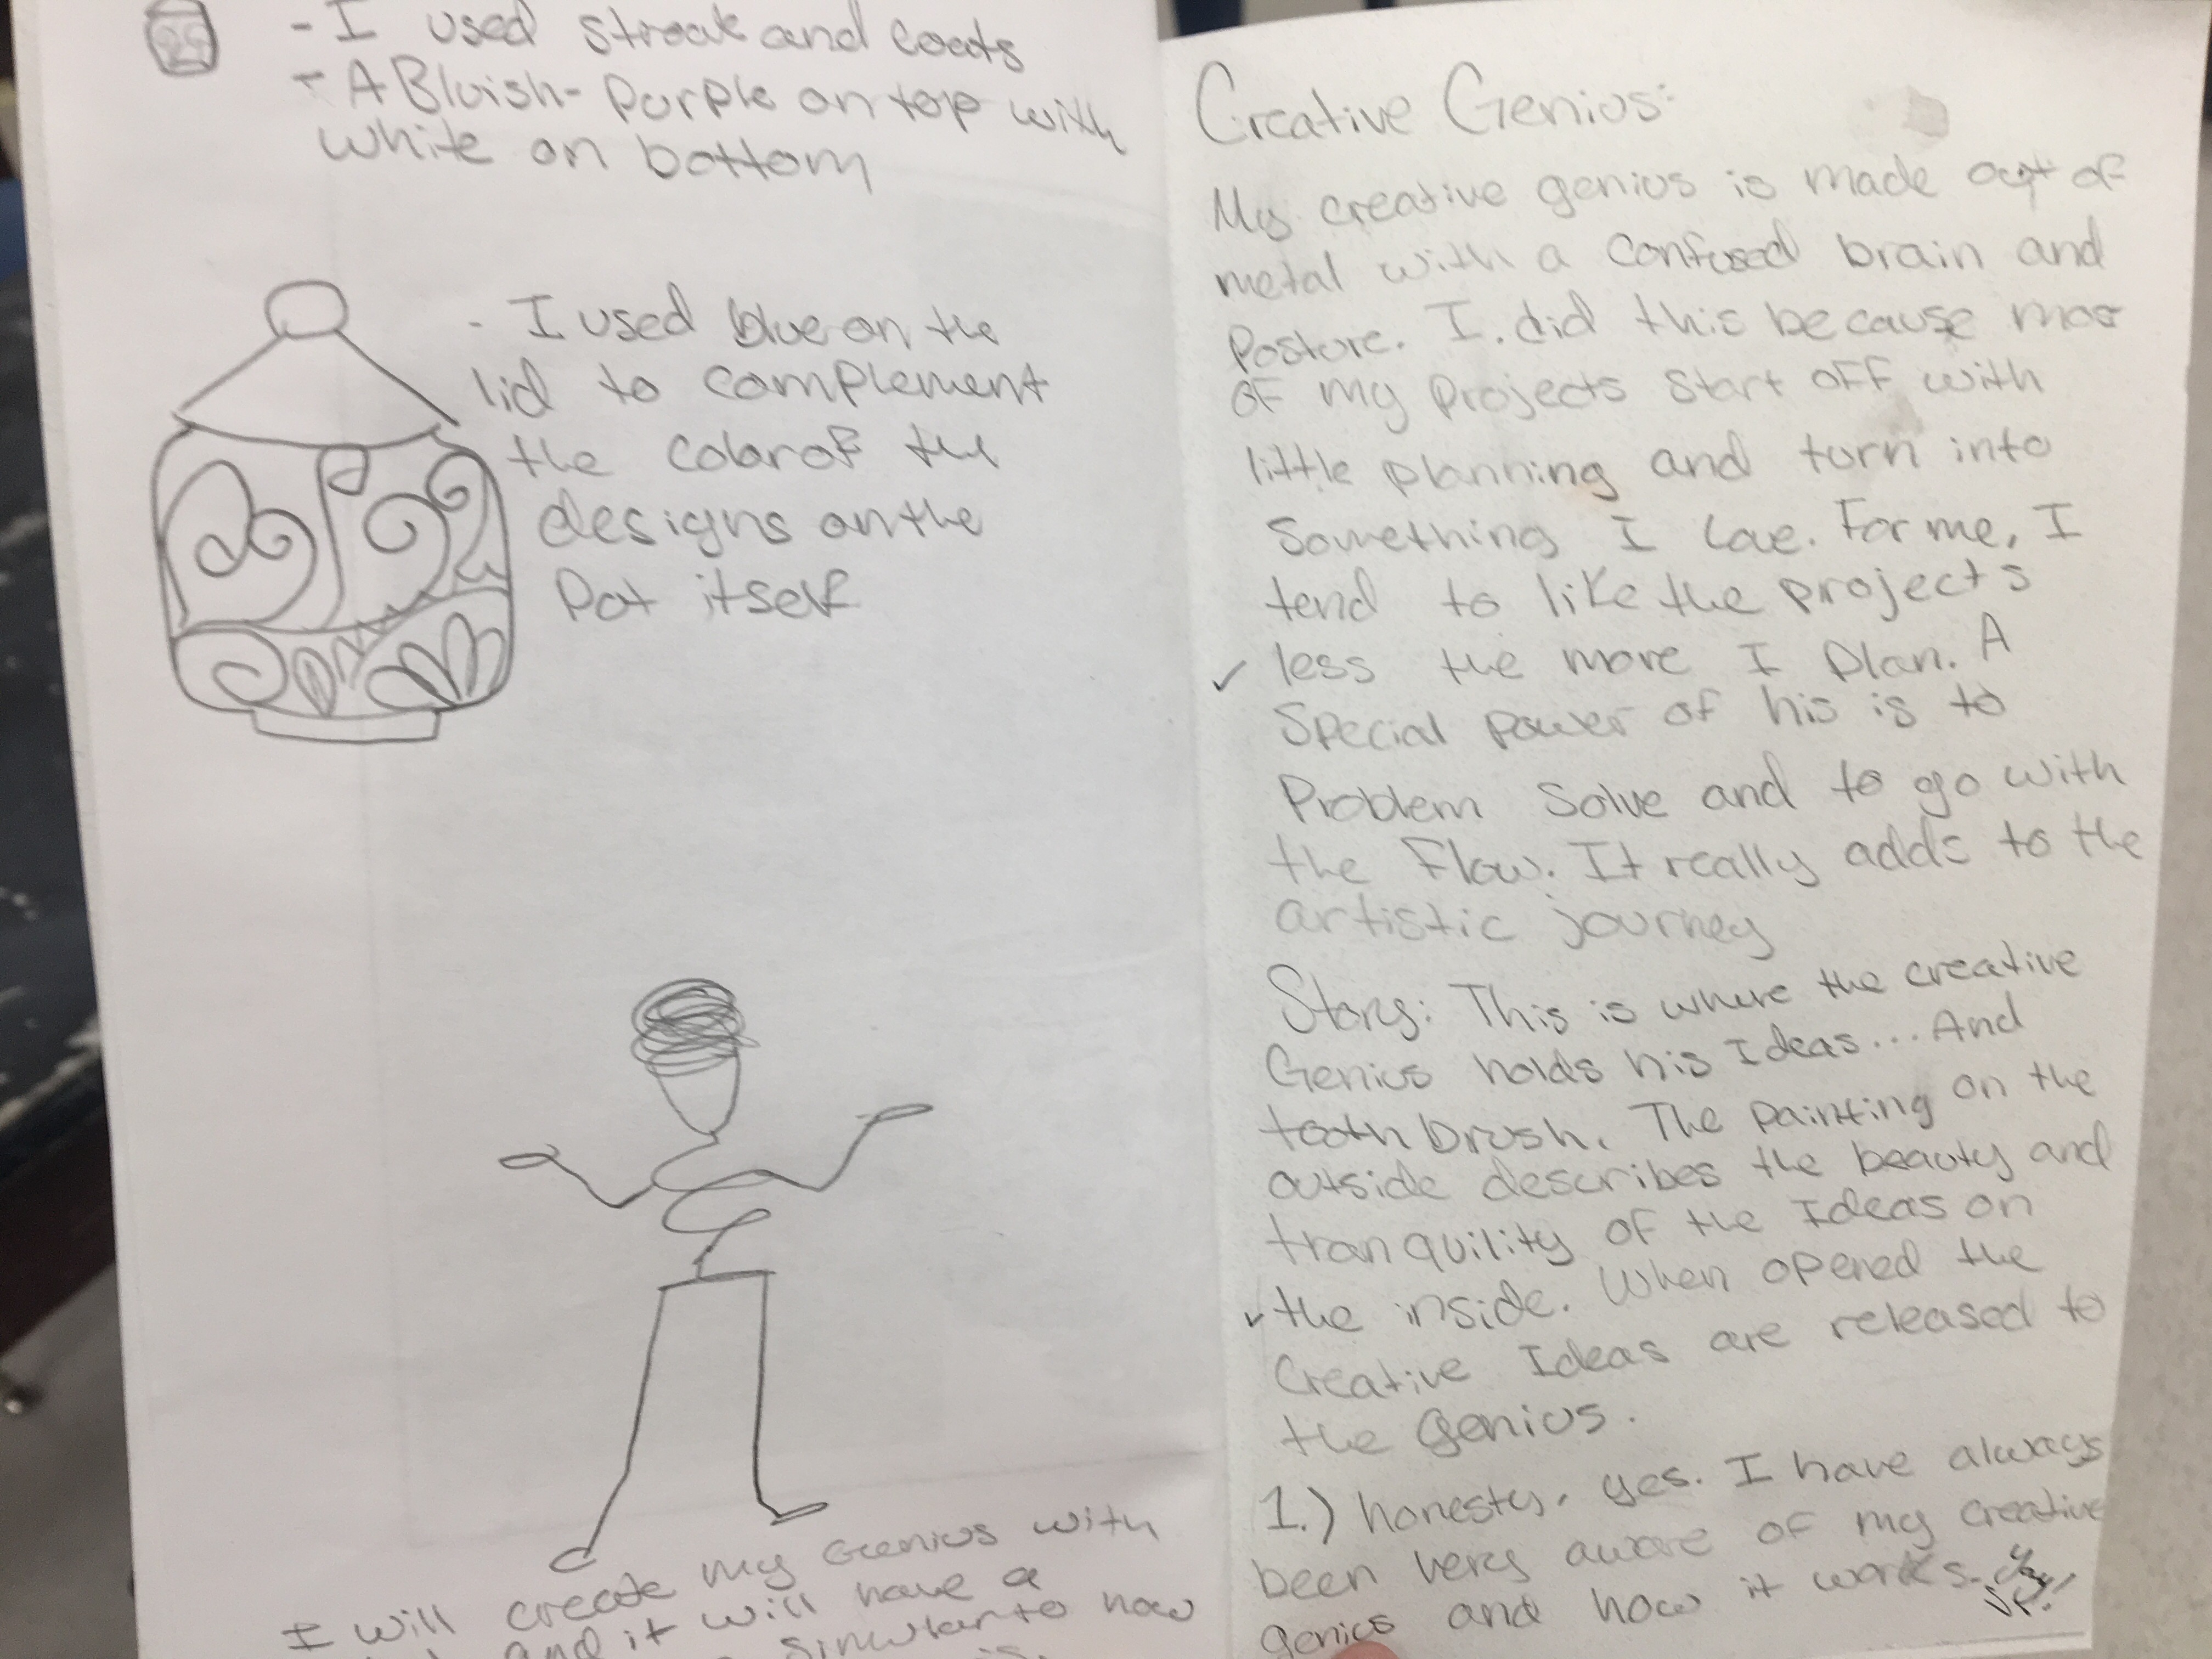 - I used streak and coats
- A Bluish-Purple on top with
white on bottom
- I used blue on the
lid to complement
the color of the
designs on the
Pot itself
I will create my Genius with
and it will have a
similar to how
is.
Creative Genius:
My creative genius is made out of
metal with a confused brain and
Posture. I did this because most
OF my projects start off with
little planning and turn into
Something I love. For me, I
tend to like the projects
less the more I plan. A
Special power of his is to
Problem Solve and to go with
the Flow. It really adds to the
artistic journey
Story: This is where the creative
Genius holds his Ideas... And
toothbrush. The painting on the
outside describes the beauty and
tranquility of the Ideas on
the inside. When opened the
Creative Ideas are released to
the genius.
1.) honesty, yes. I have always
been very aware of my creative
genics and how it works.